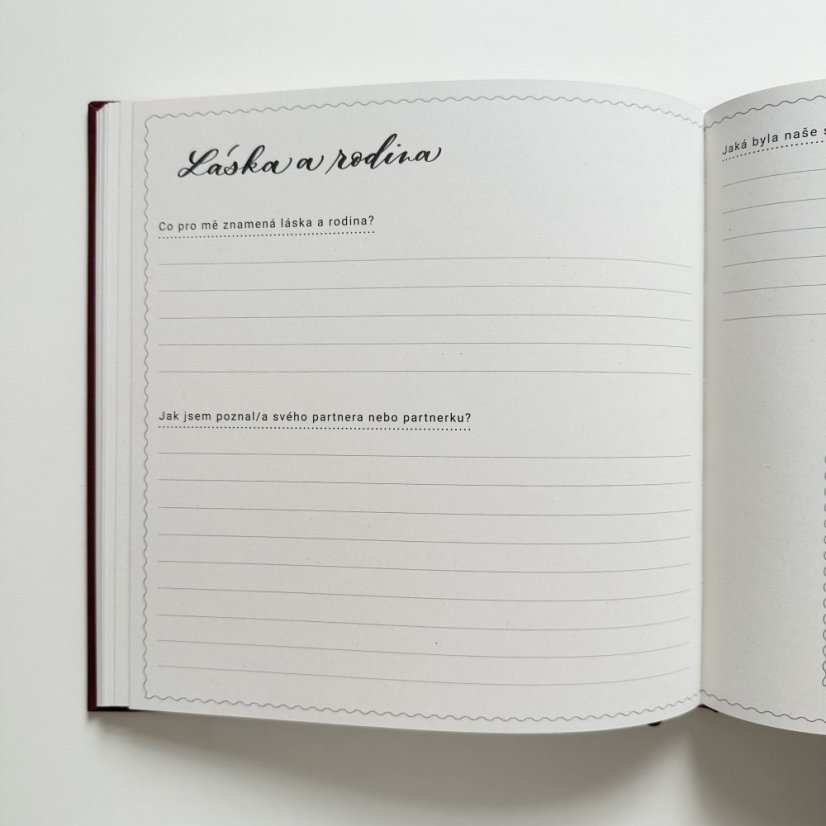 Láska a rodina
Co pro mě znamená láska a rodina?
Jak jsem poznal/a svého partnera nebo partnerku?
Jaká byla naše